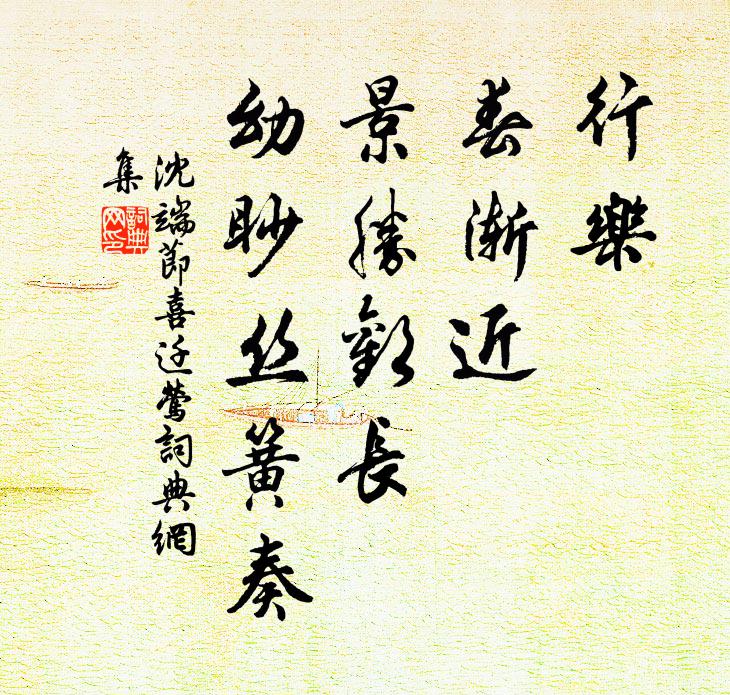 行樂
春渐近
景勝歡長
幼眇丝簧奏
沈端節喜迁鶯詞典網
集
詞典
网印